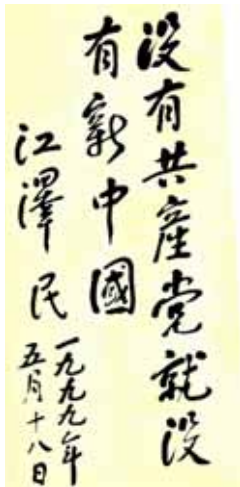 没有共產党就没
有新中國
江澤民
一九九九年
五月十八日